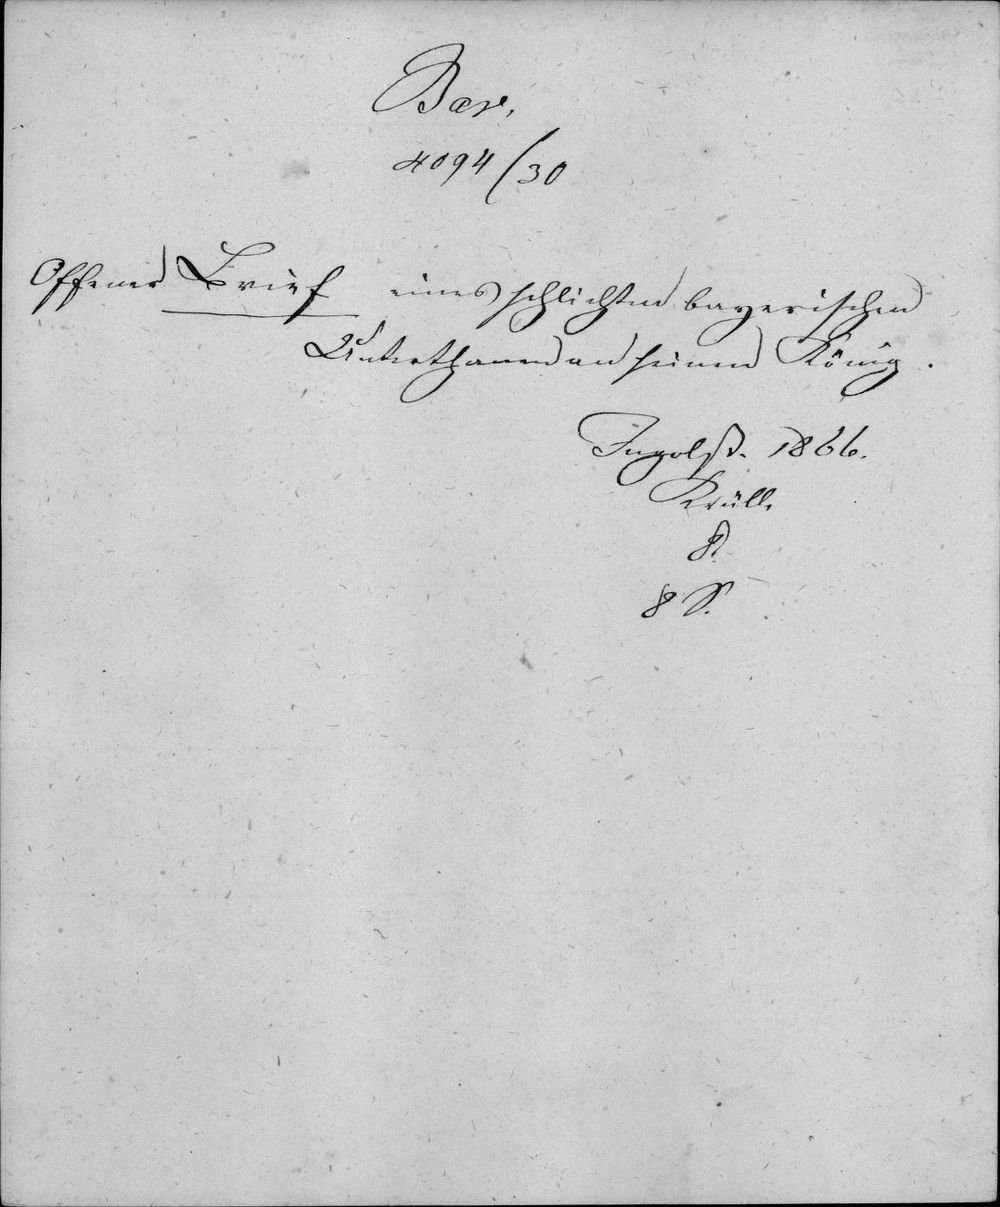 Bav.
4094/30
Offener Brief eines schlichten bayerischen
Unterthanen an seinen König.
Ingolst. 1866.
Krüll.
8°.
8 S.